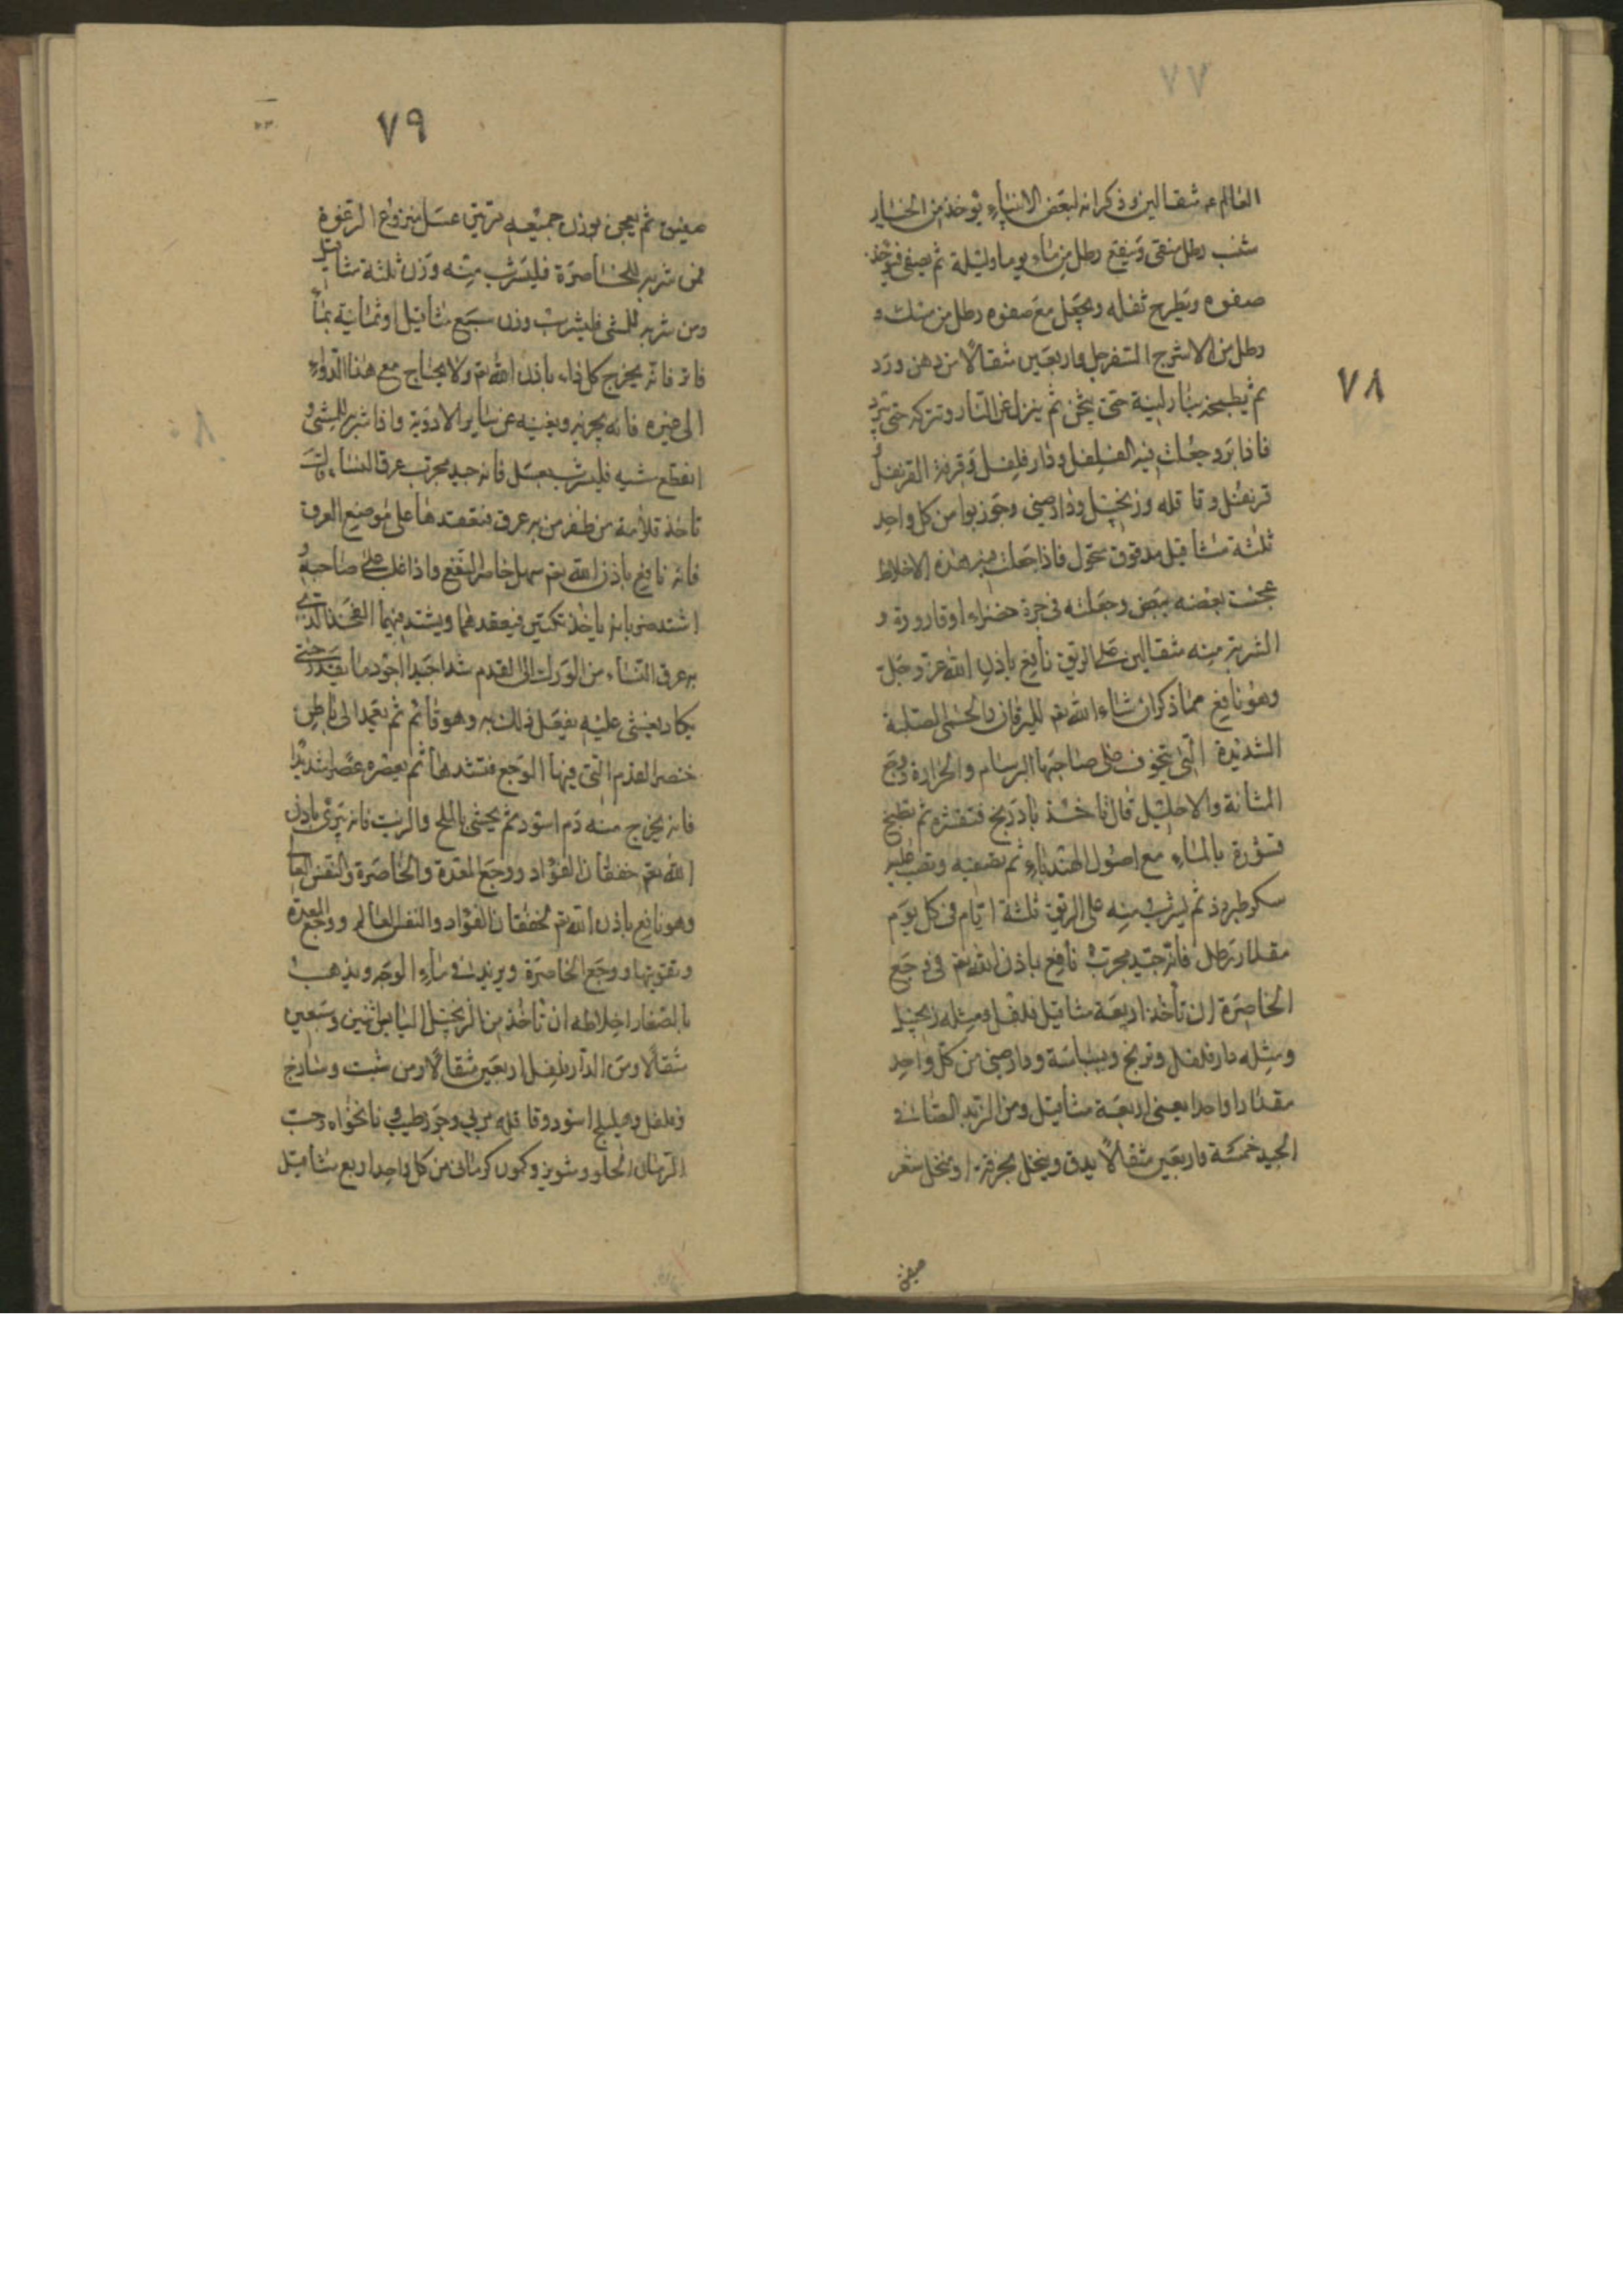 ٧٧
٧٨
العالم عه مثقالين وذكر انه لبعض الانبياء يؤخذ من الخيار
شنبر رطل منقى وينقع رطل من ماء يوما وليلة ثم يصفى فيؤخذ
صفوه ويطرح ثفله ويجعل مع صفوه رطل من عسل و
رطل من السفرجل واربعين مثقالا من دهن ورد
ثم يطبخه بنار لينة حتى يثخن ثم ينزل عن النار وتتركه حتى يبرد
فاذا برد جعلت فيه الفلفل ودار فلفل وقرفة القرنفل و
قرنفل وقاقله وزنجبيل ودارصيني وجوزبوا من كل واحد
ثلثة مثاقيل مدقوق منخول فاذا جعلت فيه هذه الاخلاط
عجنت بعضه ببعض وجعلته في جرة خضراء او قارورة و
الشربة منه مثقالين على الريق نافع باذن الله عز وجل
وهو نافع مما ذكر ان شاء الله تع لليرقان والحمى الصلبة
الشديدة التي يتخوف على صاحبها البرسام والحرارة ووجع
المثانة والاحليل قال تاخذ فتقشره ثم تطبخ
قشوره بالماء مع اصول الهندباء ثم تصفيه وتصب عليه
سكر طبرزد ثم يشرب منه على الريق ثلثة ايام في كل يوم
مقدار رطل فانه جيد مجرب نافع باذن الله تع في وجع
الخاصرة ان تأخذ اربعة مثاقيل فلفل ومثله زنجبيل
ومثله دار فلفل وبرنج وبسباسة ودارصيني من كل واحد
مقدارا واحدا يعني اربعة مثاقيل ومن الزبد الصافي
الجيد خمسة واربعين مثقالا يدق وينخل بخرقة او منخل شعر
صفيق
٧٩
صفيق ثم يعجن بوزن جميعه مرتين عسل منزوع الرغوة
فمن شربه للخاصرة فليشرب منه وزن ثلثة مثاقيل
ومن شربه للمشي فليشرب وزن سبع مثاقيل او ثمانية بماء
فاتر فانه يخرج كل داء باذن الله تع ولا يحتاج مع هذا الدواء
الى غيره فانه يجزيه ويغنيه عن ساير الادوية واذا شربه للمشي و
انقطع مشيه فليشرب بعسل فانه جيد مجرب عرق النساء
تاخذ قلامة من ظفر من به عرق فتعقدها على موضع العرق
فانه نافع باذن الله تع سهل حاضر النفع واذا غلب على صاحبه و
اشتد ضربانه ياخذ تكتين فيعقدهما ويشد فيهما الفخذ الذي
به عرق النساء من الورك الى القدم شدا جيدا اجود ما يقدر حتى
يكاد يغشى عليه يفعل ذلك به وهو قائم ثم تعمد الى باطن
خنصر القدم التي فيها الوجع فتشدها ثم يعصره عصرا شديدا
فانه يخرج منه دم اسود ثم يحشى بالملح والزيت فانه يبرئ باذن
الله تع خفقان الفؤاد ووجع المعدة والخاصرة والنفس العالي
وهو نافع باذن الله تع لخفقان الفؤاد والنفس العالي ووجع المعدة
وتقويتها ووجع الخاصرة ويزيد في ماء الوجه ويذهب
بالصفار اخلاطه ان تأخذ من الزنجبيل اليابس اثنين وسبعين
مثقالا ومن الدار فلفل اربعين مثقالا ومن شبت وساذج
وفلفل وهليلج اسود وقاقله مربى وجوز طيب ونانخواه وحب
الرمان الحلو وشونيز وكمون كرماني من كل واحد اربع مثاقيل